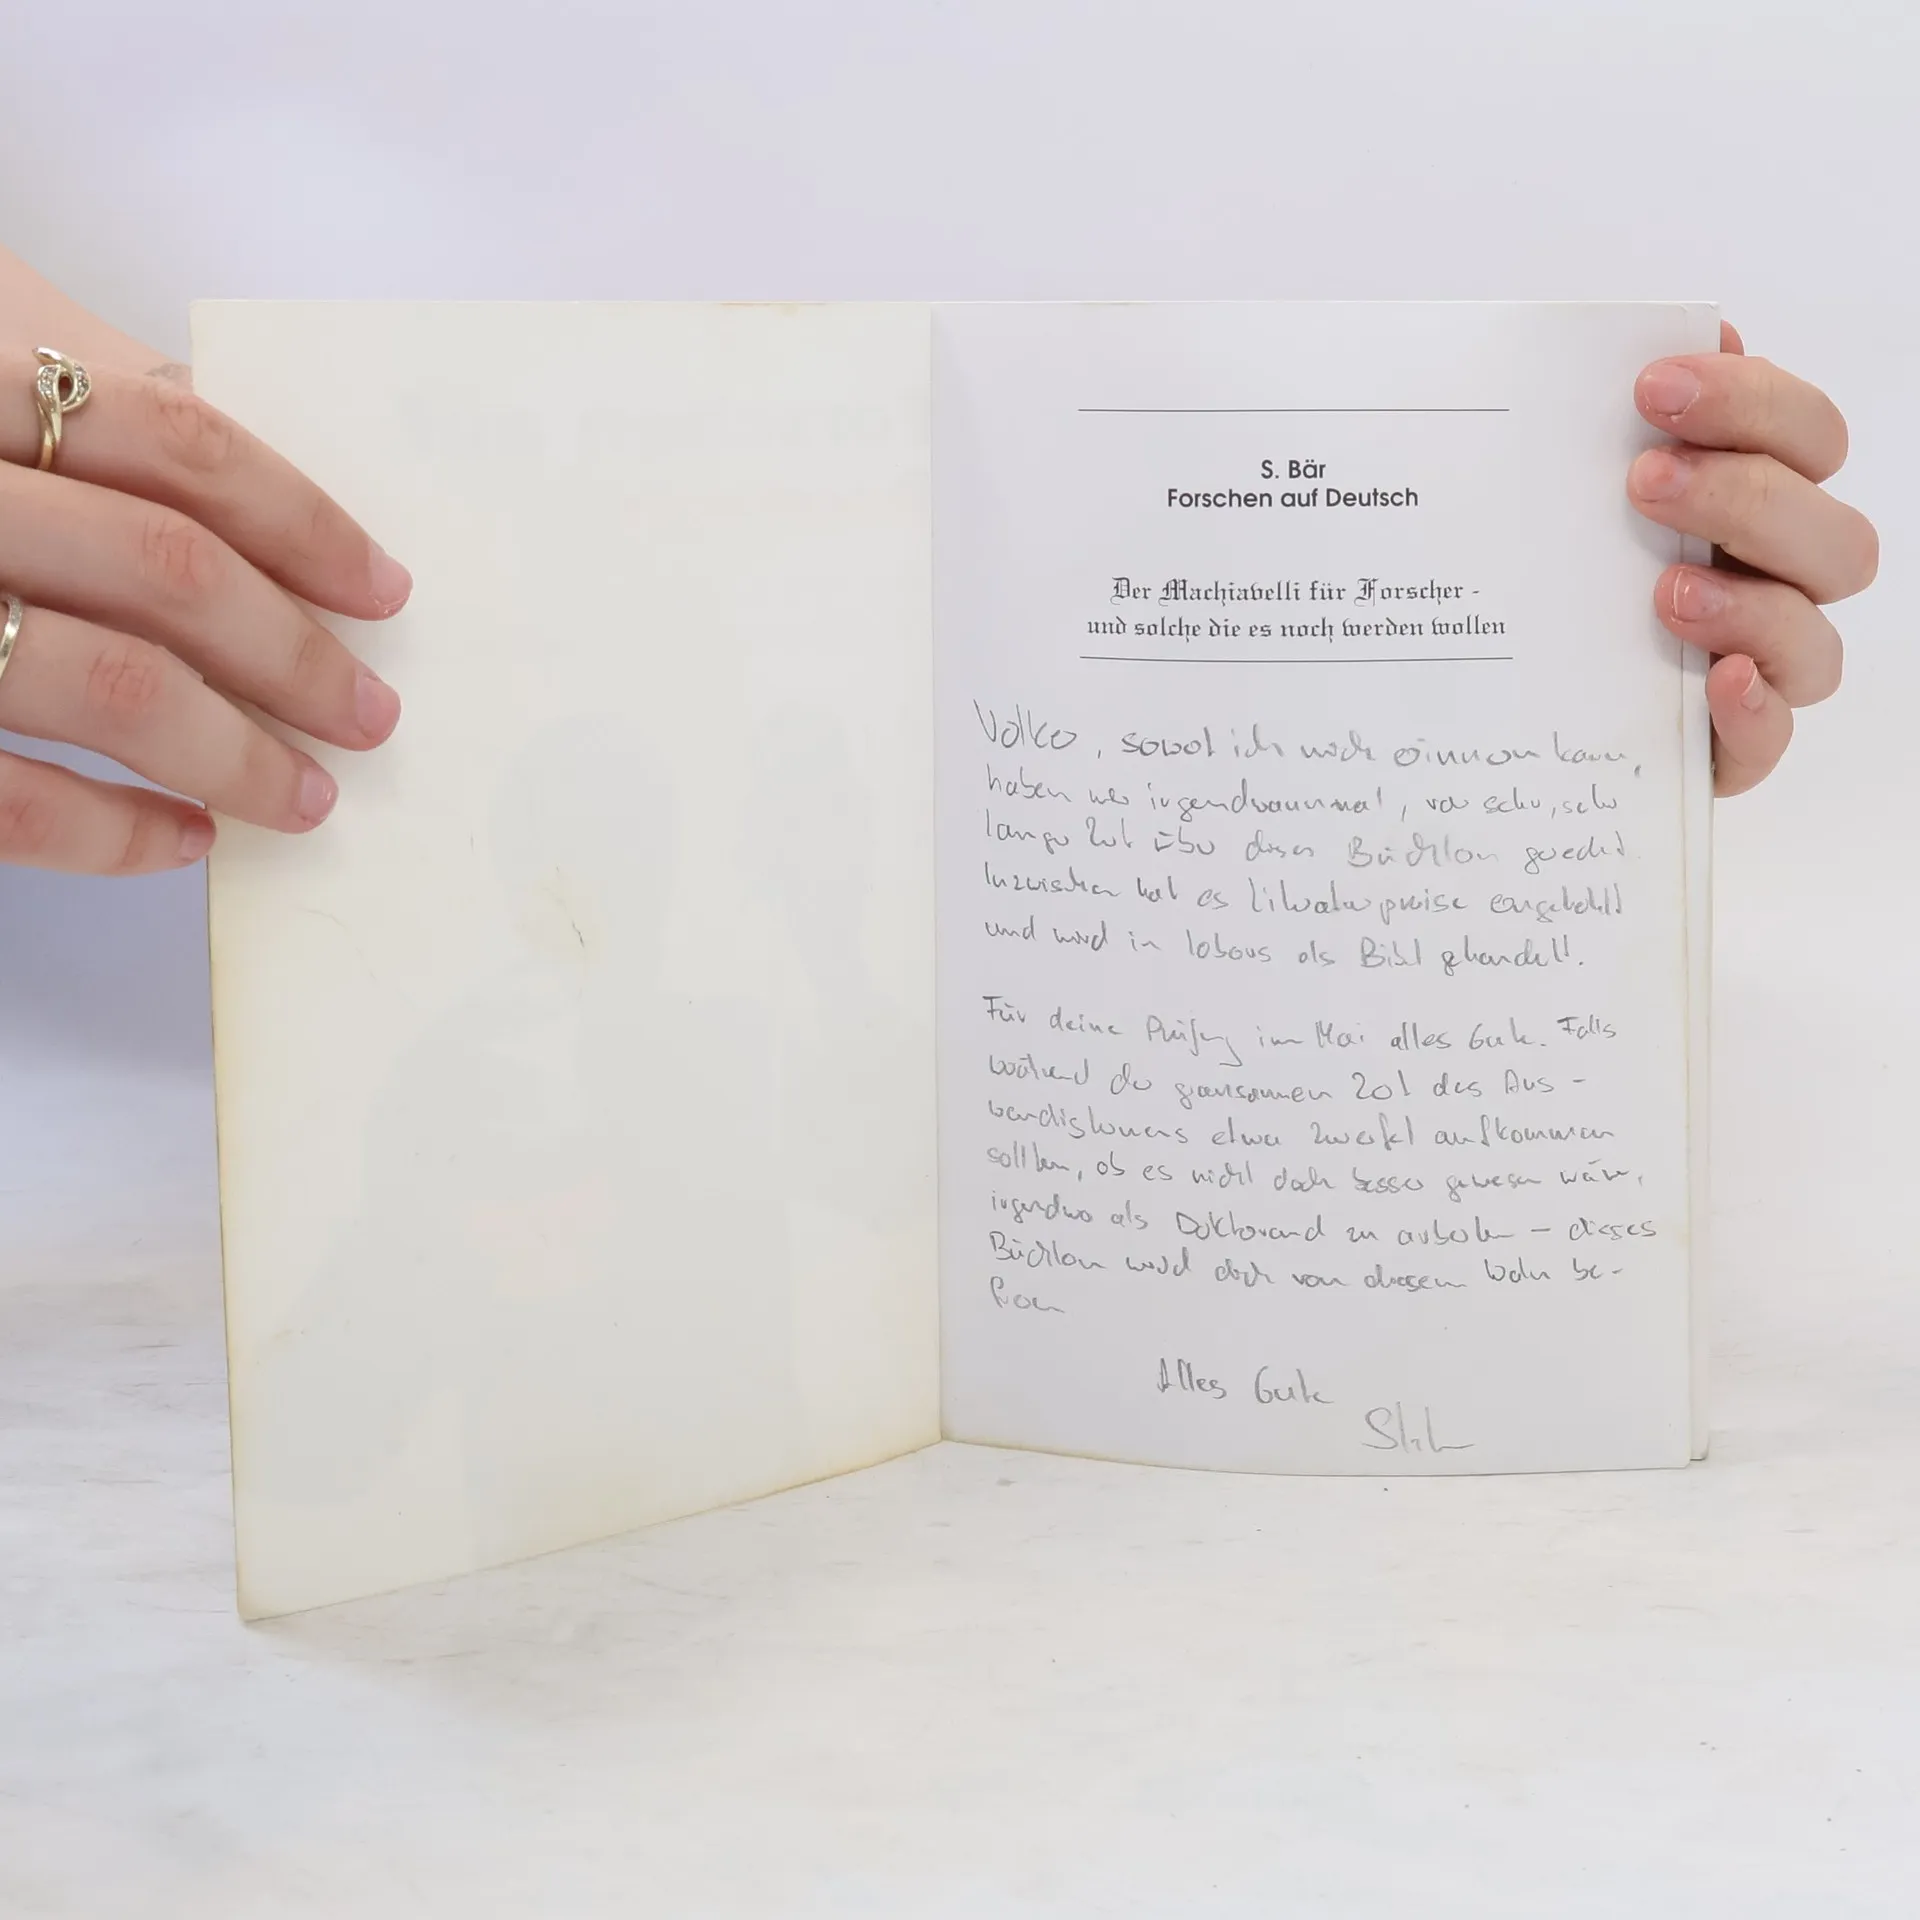 S. Bär
Forschen auf Deutsch
Der Machiavelli für Forscher -
und solche die es noch werden wollen
Volker, soviel ich mich erinnern kann,
haben wir irgendwannmal, vor sehr, sehr
langer Zeit über dieses Büchlein geredet.
Inzwischen hat es Literaturpreise eingeheimst
und wird in Labous als Bibel gehandelt.
Für deine Prüfung im Mai alles Gute. Falls
während der grausamen Zeit des Aus-
wendiglernens etwa Zweifel aufkommen
sollten, ob es nicht doch besser gewesen wäre,
irgendwo als Doktorand zu arbeiten - dieses
Büchlein wird dich von diesem Wahn be-
freien
Alles Gute